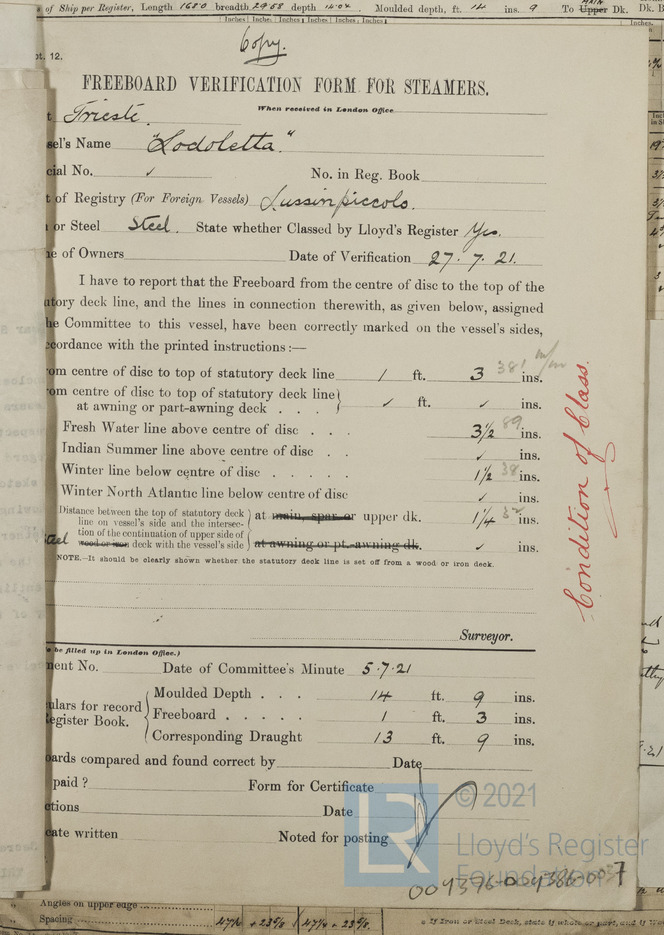 of Ship per Register, Length 168.0 breadth 29.58 depth 14.04. Moulded depth, ft. 14 ins. 9 To Upper MAIN Dk.
Inches Inches Inches Inches Inches
Copy.
pt. 12.
FREEBOARD VERIFICATION FORM FOR STEAMERS.
When received in London Office
t Trieste.
sel's Name "Lodoletta."
cial No. ✓ No. in Reg. Book
t of Registry (For Foreign Vessels) Lussinpiccolo.
or Steel Steel. State whether Classed by Lloyd's Register Yes.
e of Owners Date of Verification 27.7.21.
I have to report that the Freeboard from the centre of disc to the top of the
utory deck line, and the lines in connection therewith, as given below, assigned
he Committee to this vessel, have been correctly marked on the vessel's sides,
ccordance with the printed instructions :—
om centre of disc to top of statutory deck line 1 ft. 3 381 m/m ins.
om centre of disc to top of statutory deck line
at awning or part-awning deck . . . ✓ ft. ✓ ins.
Fresh Water line above centre of disc . . . 3½ 89 ins.
Indian Summer line above centre of disc . . ✓ ins.
Winter line below centre of disc . . . . . 1½ 38 ins.
Winter North Atlantic line below centre of disc ✓ ins.
Distance between the top of statutory deck
line on vessel's side and the intersec- at main, spar or upper dk. 1¼ 32 ins.
tion of the continuation of upper side of
Steel wood or iron deck with the vessel's side at awning or pt.-awning dk. ✓ ins.
NOTE.—It should be clearly shown whether the statutory deck line is set off from a wood or iron deck.
Condition of Class.
Surveyor.
o be filled up in London Office.)
ment No. Date of Committee's Minute 5.7.21
Moulded Depth . . . 14 ft. 9 ins.
ulars for record
Register Book. Freeboard . . . . . 1 ft. 3 ins.
Corresponding Draught 13 ft. 9 ins.
oards compared and found correct by Date
paid ? Form for Certificate
ctions Date
cate written Noted for posting
© 2021
LR
Lloyd's Register
Foundation
004376-004386-0057
Angles on upper edge
Spacing 47½ + 23⅝ 47¼ + 23⅝
If Iron or Steel Deck, state if whole or part, and if